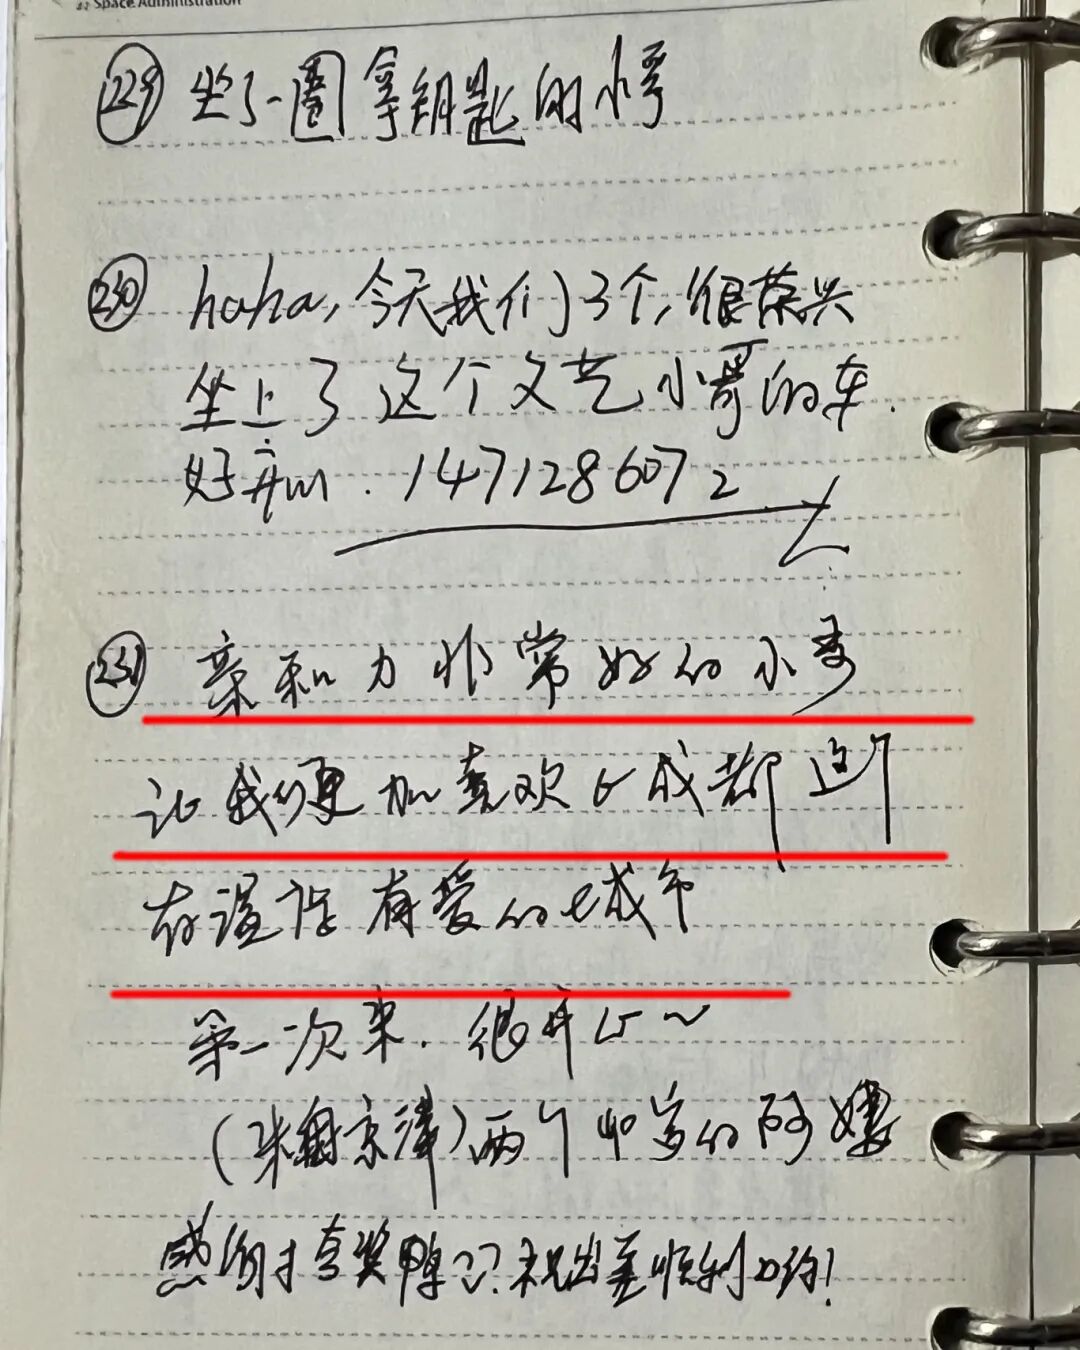 Space Administration
229 坐了一圈拿钥匙的小哥
230 haha,今天我们3个,很荣兴
坐上了这个文艺小哥的车.
好开心.1471286072
231 亲和力非常好的小哥
让我们更加喜欢了成都这个
有温度有爱的城市
第一次来.很开心~
(来自京津)两个40岁的阿姨
感谢夸奖 祝出差顺利 哟!